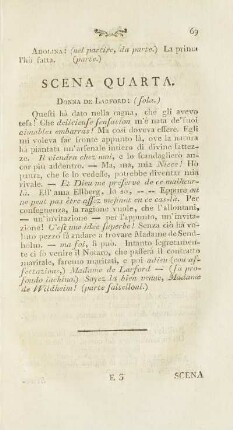 69
ADOLINA: (nel partire, da parte.) La prima
l'hò fatta. (parte.)
SCENA QUARTA.
DONNA DE LARFORD: (sola.)
Questi hà dato nella ragna, che gli avevo
tesa! Che délicieuse confusion m'è nata de' suoi
aimables embarras! Ma così doveva essere. Egli
mi voleva far fronte appunto là, ove la natura
hà piantata un'arsenale intiera di divine fattez-
ze. Il viendra chez moi, e lo scandaglierò an-
cor più addentro. — Ma, ma, mia Niece! Ho
paura, che se lo vedesse, potrebbe diventar mia
rivale. — Et Dieu me préserve de ce malheur-
là. Ell' ama Ellberg, lo sò, — — Eppure on
ne peut pas être assez mefiant en ce cas-là. Per
conseguenza, la ragione vuole, che l'allontani,
— un'invitazione — per l'appunto, un'invita-
zione! C'est une idée superbe! Senza ciò hà vo-
luto pezzo fà andare a trovare Madame de
holm. — ma foi, si può. Intanto segretamen-
te ci fò venire il Notaro, che passerà il contratto
maritale, faremo maritati, e poi adieu (con af-
fettazione,) Madame de Larford — (fa pro-
fondo inchino) Soyez la bien venue, Madame
de Wildheim! (parte saltelloni.)
E 3
SCENA